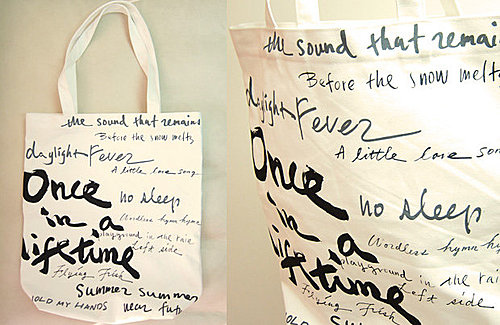 the sound that remains
Before the snow melts
daylight Fever
A little love song
Once
no sleep
in a
Wordless hymn hymn
playground in the rain
lifetime
Left side
Flying Fish
Summer Summer
HOLD MY HANDS
near
the sound that remain
Before the snow melts
daylight Fever
A little love son
Once
no sleep
in a
Wordless hymn hy
playground in the rai
lifetime
Left side
Flying Fish
OLD MY
Summer Su